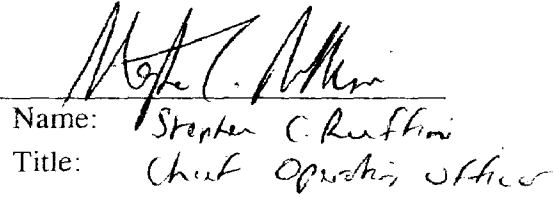 Name: Stephen C. Ruffini
Title: Chief Operating Officer